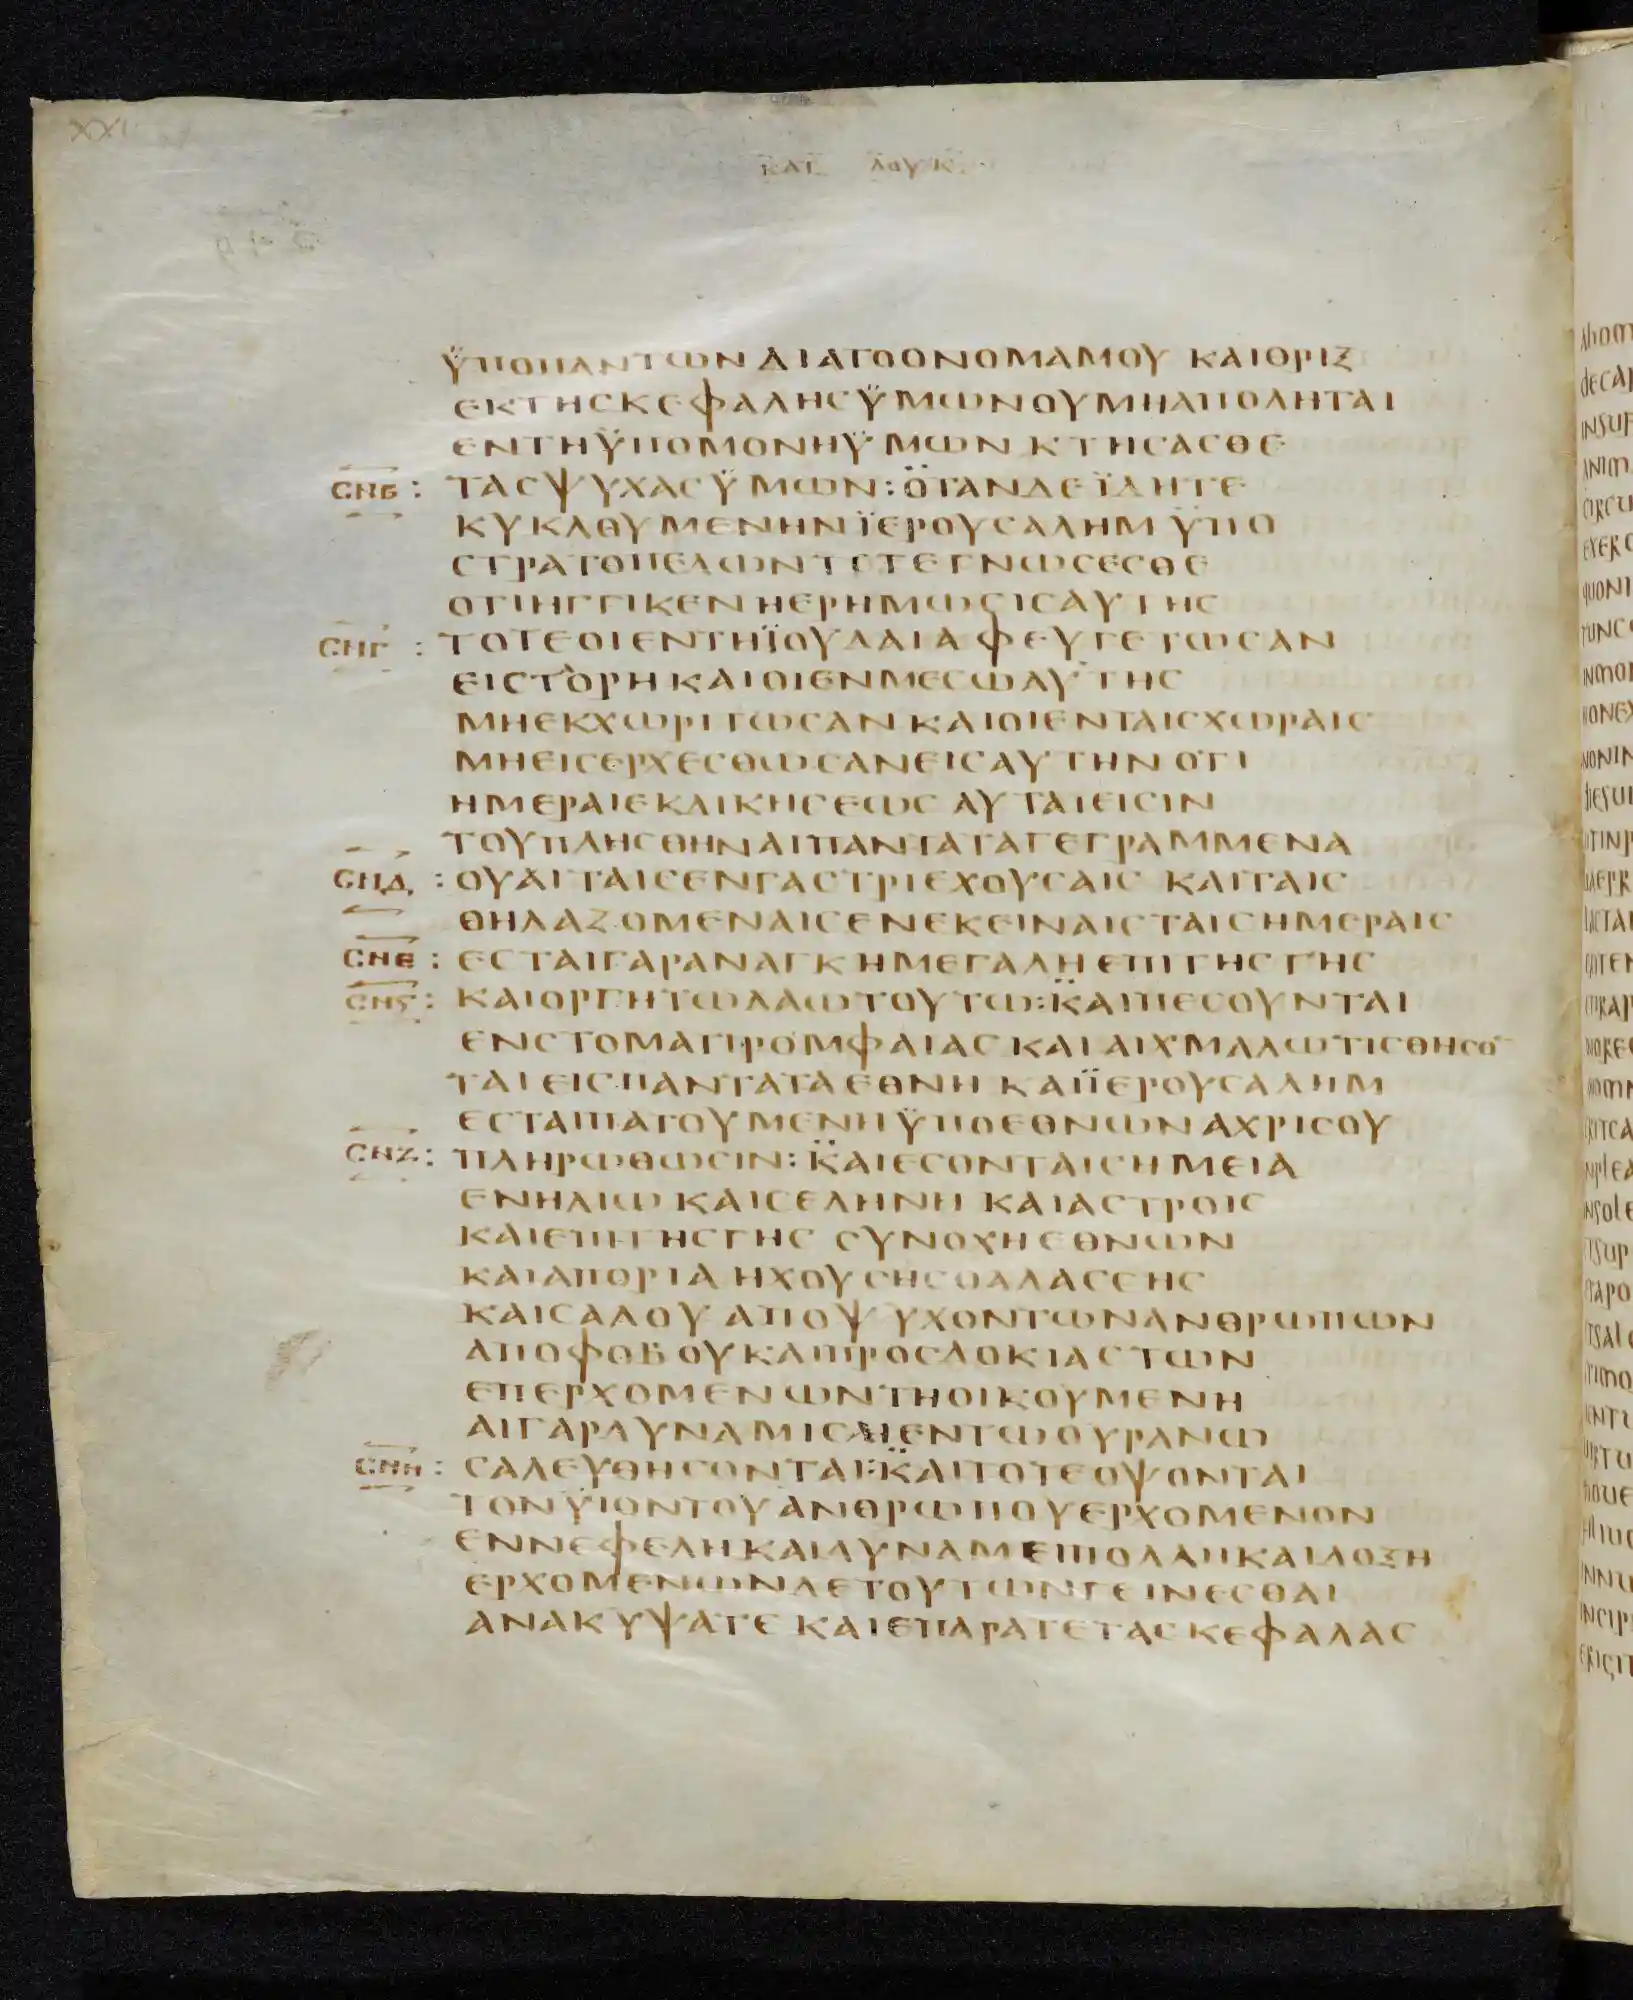 XXI
ΚΑΤ ΛΟΥΚ
ΫΠΟΠΑΝΤΩΝΔΙΑΤΟΟΝΟΜΑΜΟΥ ΚΑΙΘΡΙΞ
ΕΚΤΗΣΚΕΦΑΛΗΣΫΜΩΝΟΥΜΗΑΠΟΛΗΤΑΙ
ΕΝΤΗΫΠΟΜΟΝΗΫΜΩΝ ΚΤΗΣΑΣΘΕ
ΣΝΒ : ΤΑΣΨΥΧΑΣΫΜΩΝ : ΟΤΑΝΔΕΪΔΗΤΕ
ΚΥΚΛΟΥΜΕΝΗΝΪΕΡΟΥΣΑΛΗΜ ΫΠΟ
ΣΤΡΑΤΟΠΕΔΩΝΤΟΤΕΓΝΩΣΕΣΘΕ
ΟΤΙΗΓΓΙΚΕΝΗΕΡΗΜΩΣΙΣΑΥΤΗΣ
ΣΝΓ : ΤΟΤΕΟΙΕΝΤΗΪΟΥΔΑΙΑΦΕΥΓΕΤΩΣΑΝ
ΕΙΣΤΟΡΗΚΑΙΟΙΕΝΜΕΣΩΑΥΤΗΣ
ΜΗΕΚΧΩΡΙΤΩΣΑΝ ΚΑΙΟΙΕΝΤΑΙΣΧΩΡΑΙΣ
ΜΗΕΙΣΕΡΧΕΣΘΩΣΑΝΕΙΣΑΥΤΗΝΟΤΙ
ΗΜΕΡΑΙΕΚΔΙΚΗΣΕΩΣ ΑΥΤΑΙΕΙΣΙΝ
ΤΟΥΠΛΗΣΘΗΝΑΙΠΑΝΤΑΤΑΓΕΓΡΑΜΜΕΝΑ
ΣΝΔ : ΟΥΑΙΤΑΙΣΕΝΓΑΣΤΡΙΕΧΟΥΣΑΙΣ ΚΑΙΤΑΙΣ
ΘΗΛΑΖΟΜΕΝΑΙΣΕΝΕΚΕΙΝΑΙΣΤΑΙΣΗΜΕΡΑΙΣ
ΣΝΕ : ΕΣΤΑΙΓΑΡΑΝΑΓΚΗΜΕΓΑΛΗΕΠΙΤΗΣΓΗΣ
ΣΝϚ : ΚΑΙΟΡΓΗΤΩΛΑΩΤΟΥΤΩ : ΚΑΙΠΕΣΟΥΝΤΑΙ
ΕΝΣΤΟΜΑΤΙΡΟΜΦΑΙΑΣΚΑΙΑΙΧΜΑΛΩΤΙΣΘΗΣΟ̅
ΤΑΙΕΙΣΠΑΝΤΑΤΑΕΘΝΗ ΚΑΙΪΕΡΟΥΣΑΛΗΜ
ΕΣΤΑΙΠΑΤΟΥΜΕΝΗΫΠΟΕΘΝΩΝΑΧΡΙΣΟΥ
ΣΝΖ : ΠΛΗΡΩΘΩΣΙΝ : ΚΑΙΕΣΟΝΤΑΙΣΗΜΕΙΑ
ΕΝΗΛΙΩ ΚΑΙΣΕΛΗΝΗ ΚΑΙΑΣΤΡΟΙΣ
ΚΑΙΕΠΙΤΗΣΓΗΣ ΣΥΝΟΧΗΕΘΝΩΝ
ΚΑΙΑΠΟΡΙΑ ΗΧΟΥΣΗΣΘΑΛΑΣΣΗΣ
ΚΑΙΣΑΛΟΥ ΑΠΟΨΥΧΟΝΤΩΝΑΝΘΡΩΠΩΝ
ΑΠΟΦΟΒΟΥΚΑΙΠΡΟΣΔΟΚΙΑΣΤΩΝ
ΕΠΕΡΧΟΜΕΝΩΝΤΗΟΙΚΟΥΜΕΝΗ
ΑΙΓΑΡΔΥΝΑΜΙΣΑΙΕΝΤΩΟΥΡΑΝΩ
ΣΝΗ : ΣΑΛΕΥΘΗΣΟΝΤΑΙ : ΚΑΙΤΟΤΕΟΨΟΝΤΑΙ
ΤΟΝΫΙΟΝΤΟΥΑΝΘΡΩΠΟΥΕΡΧΟΜΕΝΟΝ
ΕΝΝΕΦΕΛΗΚΑΙΔΥΝΑΜΕΙΠΟΛΛΗΚΑΙΔΟΞΗ
ΕΡΧΟΜΕΝΩΝΔΕΤΟΥΤΩΝΓΕΙΝΕΣΘΑΙ
ΑΝΑΚΥΨΑΤΕ ΚΑΙΕΠΑΡΑΤΕΤΑΣΚΕΦΑΛΑΣ